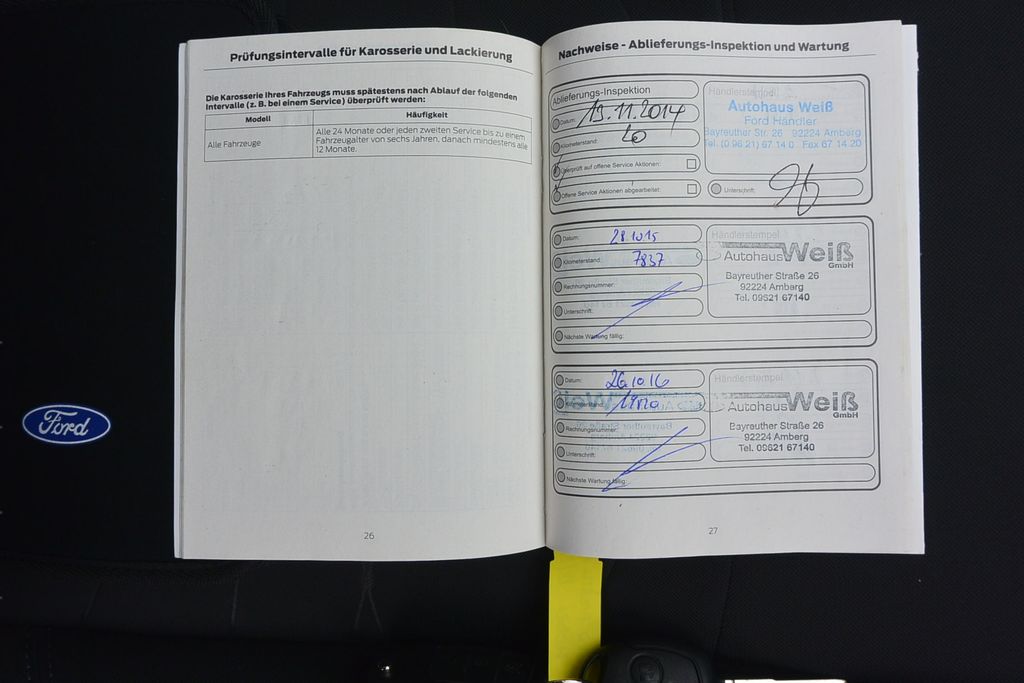 Prüfungsintervalle für Karosserie und Lackierung
Die Karosserie Ihres Fahrzeugs muss spätestens nach Ablauf der folgenden
Intervalle (z. B. bei einem Service) überprüft werden:
Modell
Häufigkeit
Alle Fahrzeuge
Alle 24 Monate oder jeden zweiten Service bis zu einem
Fahrzeugalter von sechs Jahren, danach mindestens alle
12 Monate.
26
Nachweise - Ablieferungs-Inspektion und Wartung
Ablieferungs-Inspektion
Datum: 19.11.2014
Kilometerstand:
Überprüft auf offene Service Aktionen:
Offene Service Aktionen abgearbeitet:
Händlerstempel
Autohaus Weiß
Ford Händler
Bayreuther Str. 26 92224 Amberg
Tel. (0 96 21) 67 14 0 Fax 67 14 20
Unterschrift:
Datum: 28.10.15
Kilometerstand: 7837
Rechnungsnummer:
Unterschrift:
Nächste Wartung fällig:
Händlerstempel
Autohaus Weiß
GmbH
Bayreuther Straße 26
92224 Amberg
Tel. 09621 67140
Datum: 26.10.16
Kilometerstand:
Rechnungsnummer:
Unterschrift:
Nächste Wartung fällig:
Händlerstempel
Autohaus Weiß
GmbH
Bayreuther Straße 26
92224 Amberg
Tel. 09621 67140
27
Ford